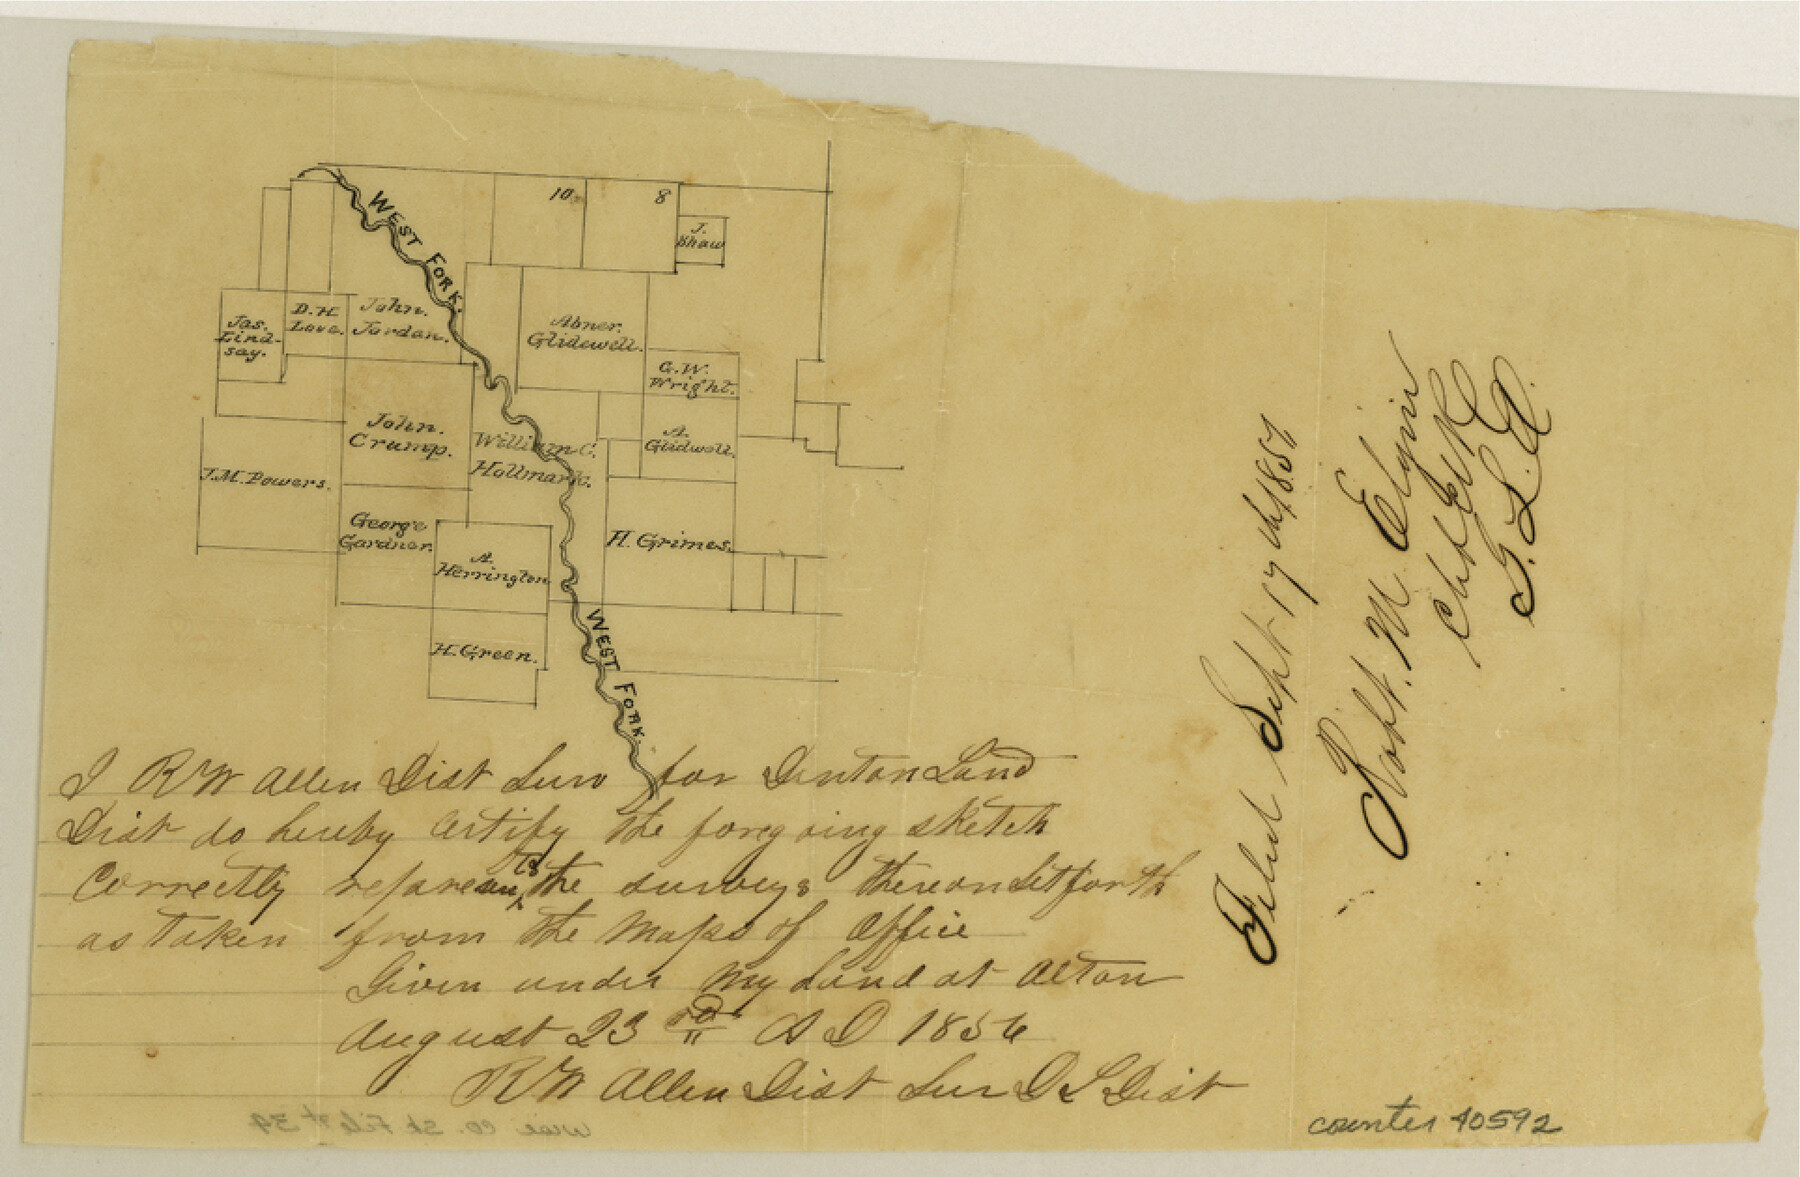 10
8
J.
Shaw
WEST FORK.
Jas.
Lind-
say.
D. H.
Love.
John.
Jordan.
Abner.
Glidewell.
G. W.
Wright.
John.
Crump.
William C.
Hallmark.
A.
Glidwell.
J. M. Powers.
George
Gardner.
A.
Herrington
H. Grimes.
H. Green.
WEST FORK.
I R W Allen Dist Surv for Denton Land
Dist do hereby Certify the foregoing sketch
Correctly represents the surveys thereon Set forth
as taken from the Maps of office
Given under my hand at Alton
August 23rd A D 1856
R W Allen Dist Sur D L Dist
Filed Sept 17th 1857
Robt. M Elgin
Chf Clk
G. L. O.
counter 40592
Wise Co. Sk File # 39